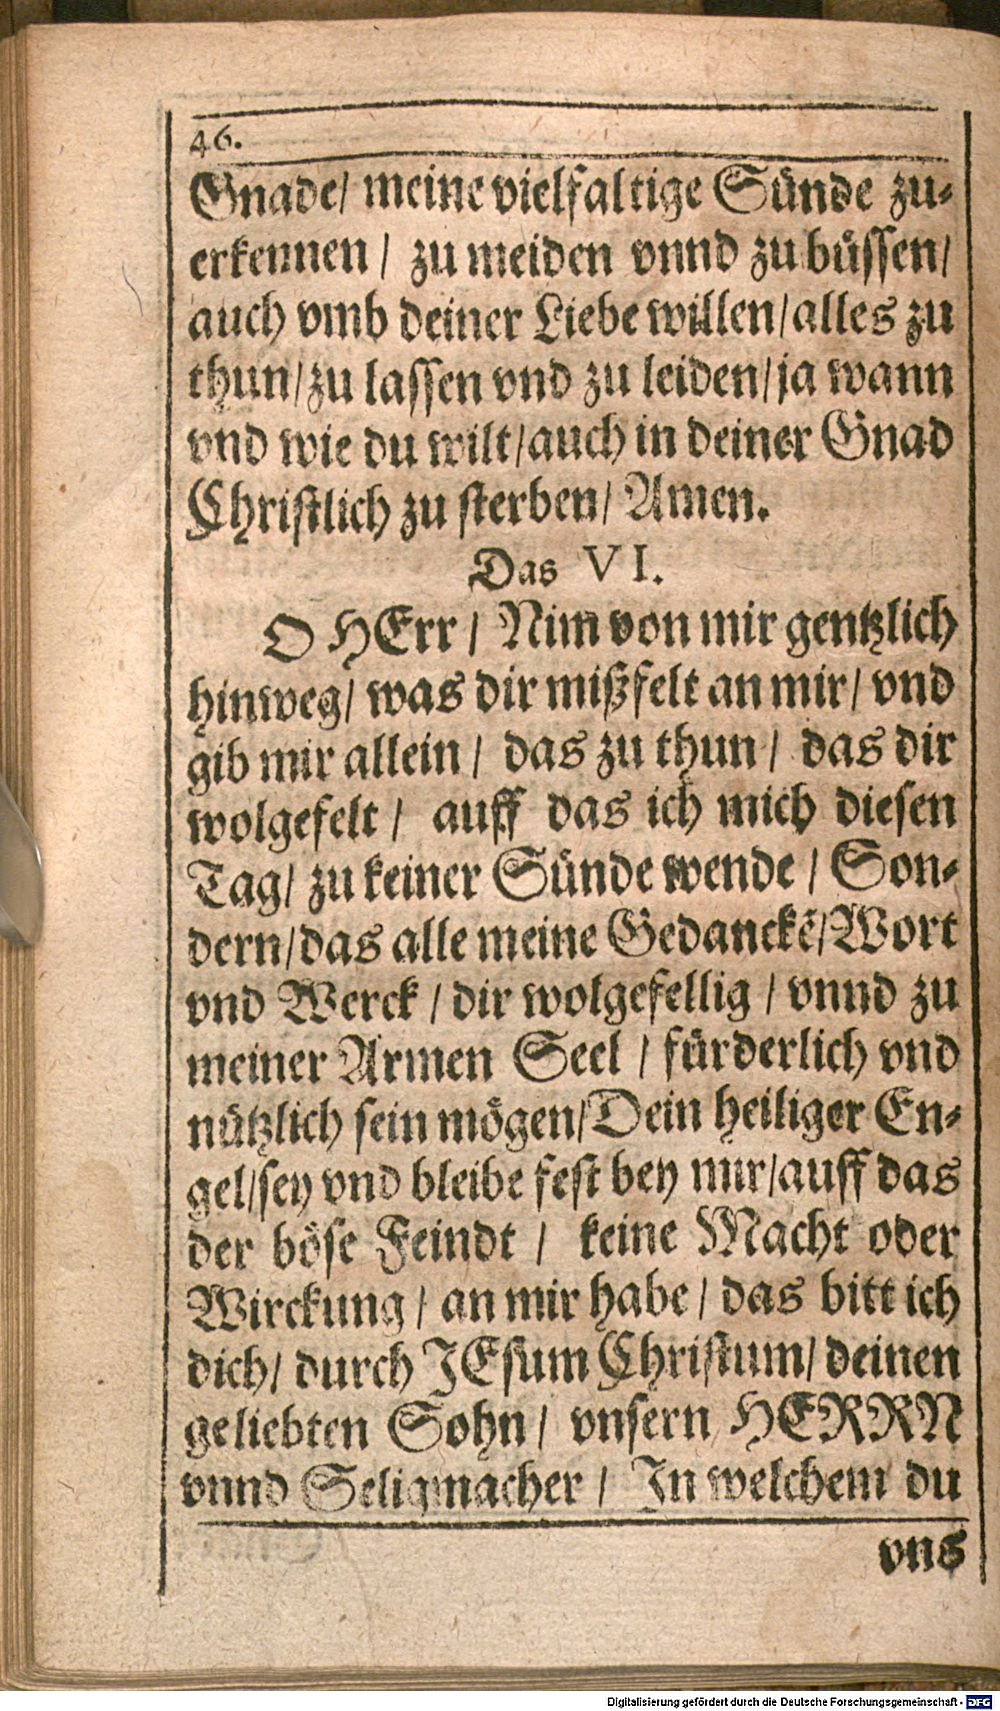 46.
Gnade/ meine vielfaltige Sünde zu-
erkennen/ zu meiden vnnd zu büssen/
auch vmb deiner Liebe willen/alles zu
thun/zu lassen vnd zu leiden/ja wann
vnd wie du wilt/auch in deiner Gnad
Christlich zu sterben/ Amen.
Das VI.
O HErr/ Nim von mir gentzlich
hinweg/ was dir mißfelt an mir/ vnd
gib mir allein/ das zu thun/ das dir
wolgefelt/ auff das ich mich diesen
Tag/ zu keiner Sünde wende/ Son-
dern/das alle meine Gedanckē/Wort
vnd Werck/ dir wolgefellig/ vnnd zu
meiner Armen Seel/ fürderlich vnd
nützlich sein mögen/Dein heiliger En-
gel/sey vnd bleibe fest bey mir/auff das
der böse Feindt/ keine Macht oder
Wirckung/ an mir habe/ das bitt ich
dich/ durch JEsum Christum/ deinen
geliebten Sohn/ vnsern HERRN
vnnd Seligmacher/ In welchem du
vns
Digitalisierung gefördert durch die Deutsche Forschungsgemeinschaft - DFG